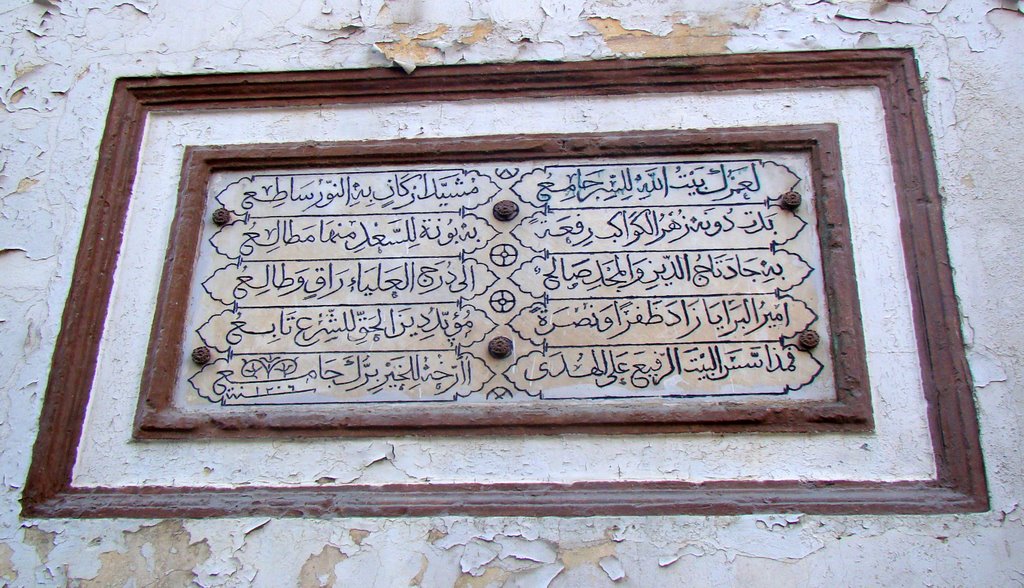 لعمرك بيت الله للسر جامع مشيد أركان به النور ساطع
بدت دونه زهر الكواكب رفعة به بونة للسعد منها مطالع
به جاد تاج الدين والمجد صالح الى درج العلياء راق وطالع
امير البرايا زاد ظفرا ونصرة مؤيد دين الحق للشرع تابع
فمذ اسس البيت الرفيع على الهدى للخير برك جامع
سنة ١٢٠٦